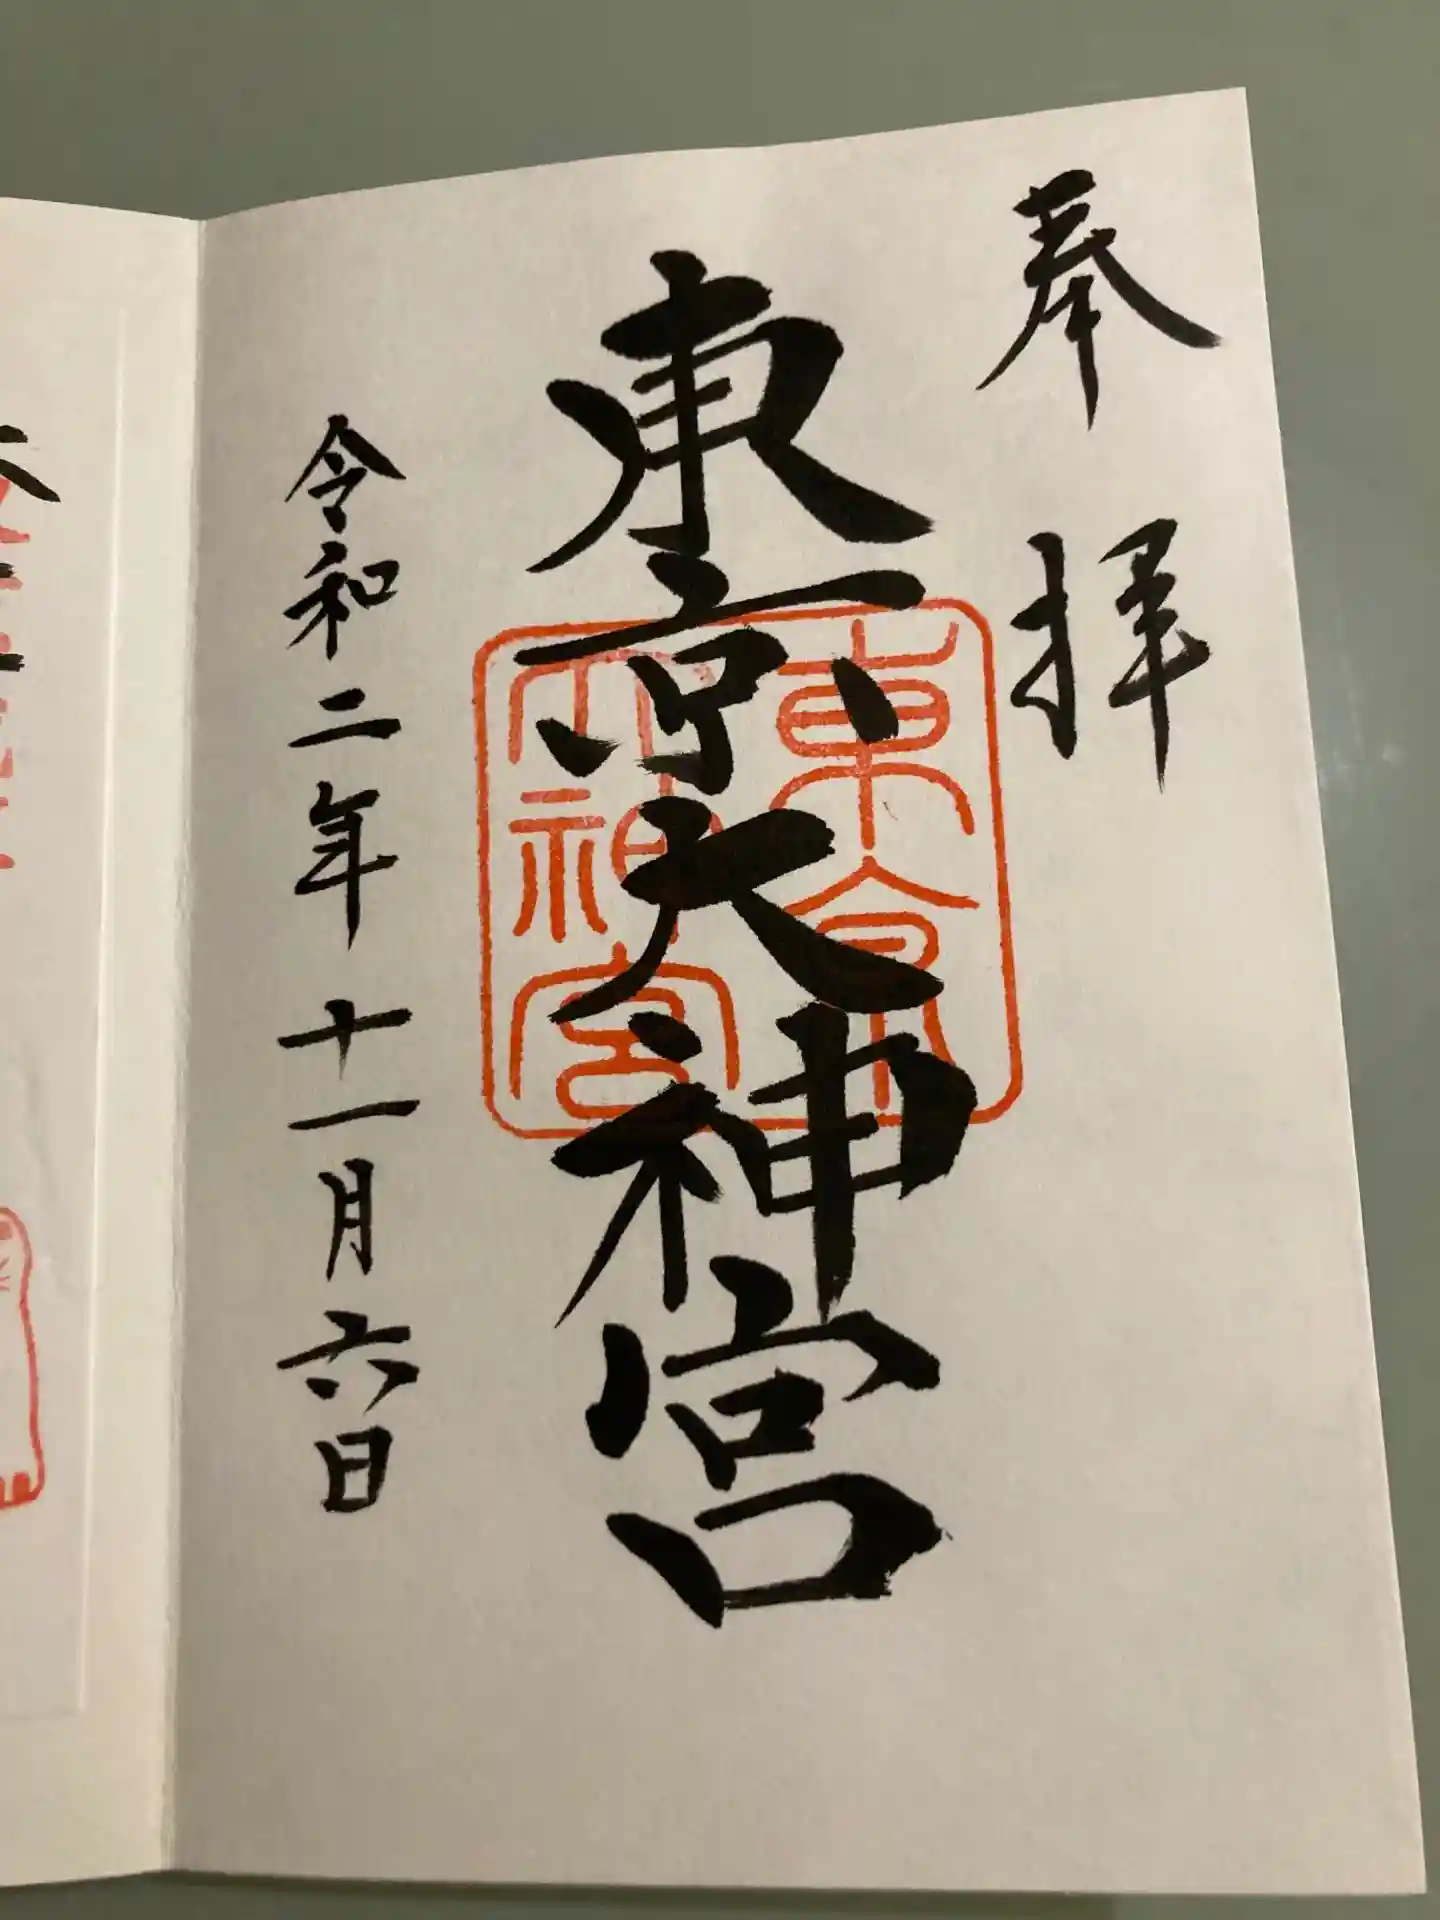 奉拝
東京大神宮
東京
大神宮
令和二年十一月六日